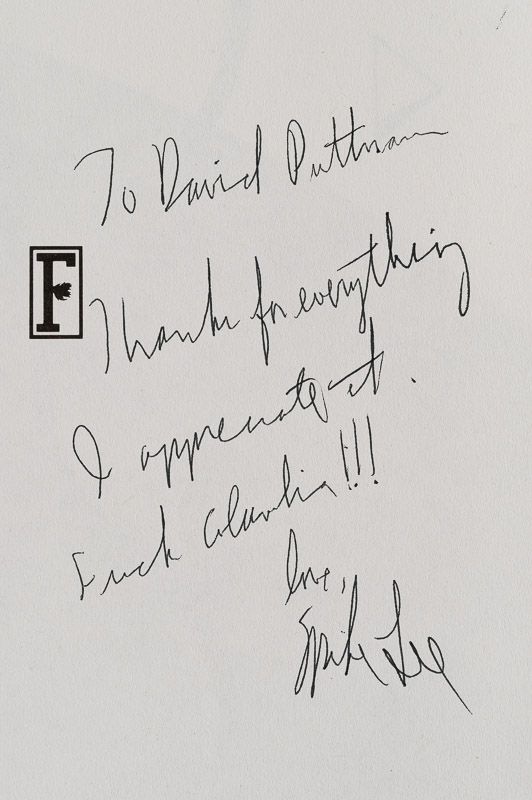 To David Puttnam
F
Thanks for everything
I appreciate it.
Fuck Columbia!!!
love,
Spike Lee